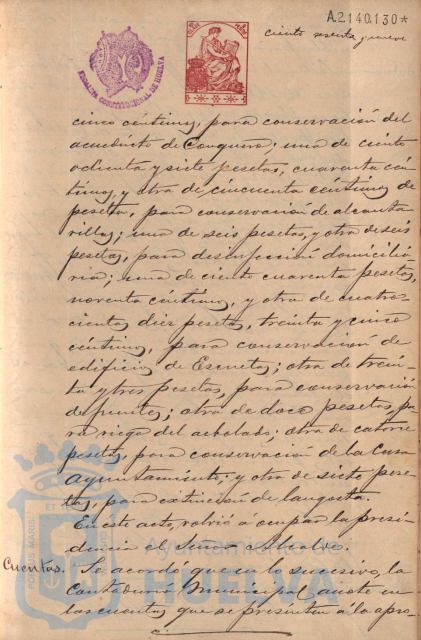 A.2140.130*
ciento sesenta y nueve
ALCALDIA CONSTITUCIONAL DE HUELVA
cinco céntimos, para conservación del
acueducto de Conquero; una de ciento
ochenta y siete pesetas, cuarenta cén-
timos, y otra de cincuenta céntimos de
peseta, para conservación de alcanta
rillas; una de seis pesetas, y otra de seis
pesetas, para desinfección domicilia
ria; una de ciento cuarenta pesetas,
noventa céntimos, y otra de cuatro-
cientas diez pesetas, treinta y cinco
céntimos, para conservación de
edificios de Escuelas; otra de trein-
ta y tres pesetas, para conservación
de fuentes; otra de doce pesetas, pa
ra riego del arbolado; otra de catorce
pesetas, para conservación de la Casa
Ayuntamiento; y otra de siete pese-
tas, para extinción de langosta.
En este acto, volvió a ocupar la presi-
dencia el Señor Alcalde.
Cuentas. Se acordó que en lo sucesivo, la
Contaduría Municipal anote en
las cuentas que se presenten a la apro-
Ayuntamiento de
HUELVA